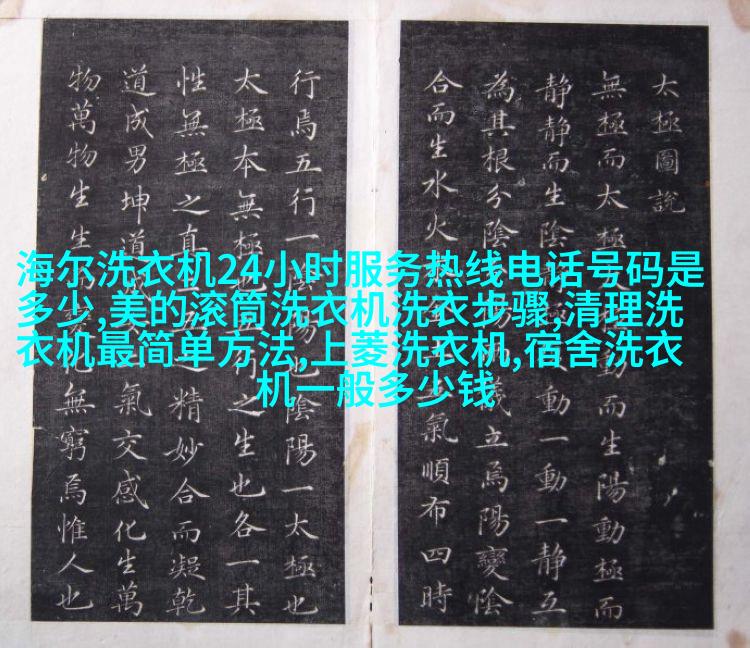 太極圖說
無極而太極動而生陽動極而
静静而生陰極動一動一静互
為其根分陰陽儀立焉陽變陰
合而生水火氣順布四時
行焉五行一陰陽也陰陽一太極也
太極本無極也行之生也各一其
性無極之真之精妙合而凝乾
道成男坤道氣交感化生萬
物萬物生生化無窮焉惟人也
海尔洗衣机24小时服务热线电话号码是
多少,美的滚筒洗衣机洗衣步骤,清理洗
衣机最简单方法,上菱洗衣机,宿舍洗衣
机一般多少钱